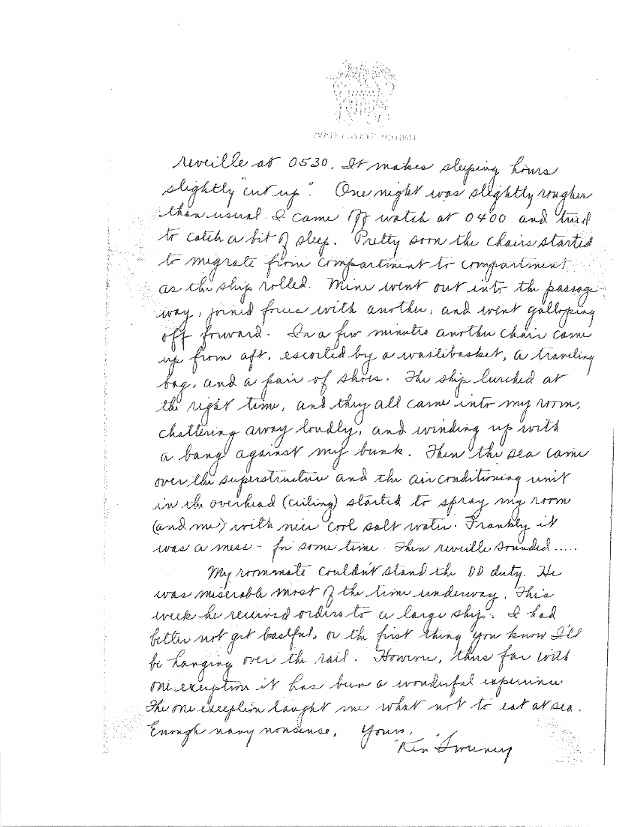 reveille at 0530. It makes sleeping hours
slightly "cut up". One night was slightly rougher
than usual I came off watch at 0400 and tried
to catch a bit of sleep. Pretty soon the chairs started
to megrate from compartment to compartment
as the ship rolled. Mine went out into the passage
way, joined forces with another, and went galloping
off forward. In a few minutes another chair came
up from aft, escorted by a wastebasket, a traveling
bag, and a pair of shoes. The ship lurched at
the right time, and they all came into my room,
chattering away loudly, and winding up with
a bang against my bunk. Then the sea came
over the superstructure and the airconditioning unit
in the overhead (ceiling) started to spray my room
(and me!) with nice cool salt water. Frankly it
was a mess - for some time. Then reveille sounded.....
My roommate couldn't stand the DD duty. He
was miserable most of the time underway. This
week he received orders to a large ship. I had
better not get boastful, or the first thing you know I'll
be hanging over the rail. However, thus far with
one exception it has been a wonderful experience
The one exception taught me what not to eat at sea.
Enough navy nonsense, Yours,
Ken Sweeney